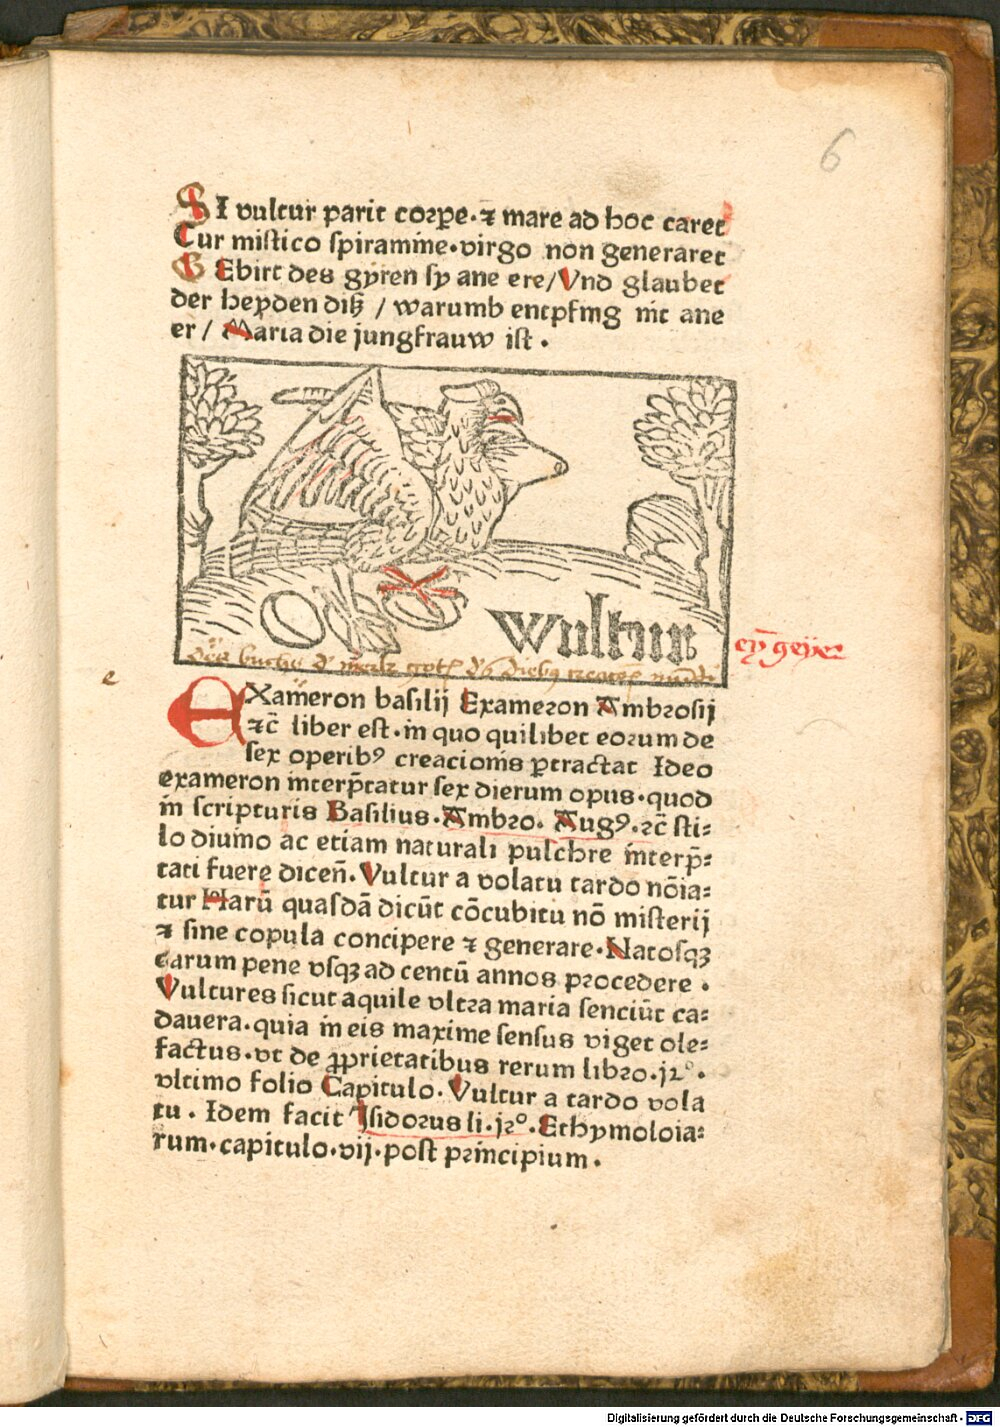 6
SI vultur parit corpe·⁊ mare ad hoc caret
Cur mistico spiramine·virgo non generaret
GEbirt des gyren sy ane ere/Vnd glaubet
der heyden diß / warumb entpfing nit ane
er / Maria die jungfrauw ist ·
wultur
eyn̄ geyer
e
EXameron basilij Exameron Ambrosij
⁊c̄ liber est·in quo quilibet eorum de
sex operibꝰ creacionis ꝑtractat Ideo
exameron interp̄tatur sex dierum opus·quod
in scripturis Basilius·Ambro. Augꝰ.⁊c̄ sti⸗
lo diuino ac etiam naturali pulchre interp̄⸗
tati fuere dicen̄. Vultur a volatu tardo nōia⸗
tur Harū quasdā dicūt cōcubitu nō misterij
⁊ sine copula concipere ⁊ generare·Natosqꝫ
earum pene vsqꝫ ad centū annos procedere ·
Vultures sicut aquile vltra maria senciūt ca⸗
dauera·quia in eis maxime sensus viget ole⸗
factus·vt de ꝓprietatibus rerum libro·j2°·
vltimo folio Capitulo. Vultur a tardo vola
tu · Idem facit Jsidorus li·j2°·Ethymoloia⸗
rum·capitulo·vij·post principium·
Digitalisierung gefördert durch die Deutsche Forschungsgemeinschaft - DFG